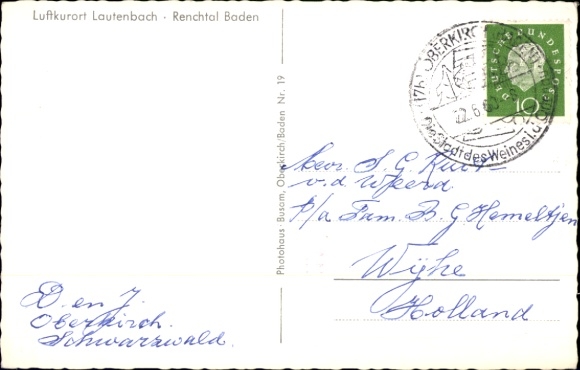 Luftkurort Lautenbach · Renchtal Baden
(17b) OBERKIRCH
22.6.60
Die Stadt des Weines
DEUTSCHE BUNDESPOST
10
Photohaus Busam, Oberkirch/Baden Nr. 19
Mevr. S. G.
v.d. Weerd
p/a Fam. B. G. Hemeltjen
Wijhe
Holland
B. en J.
Oberkirch.
Schwarzwald.